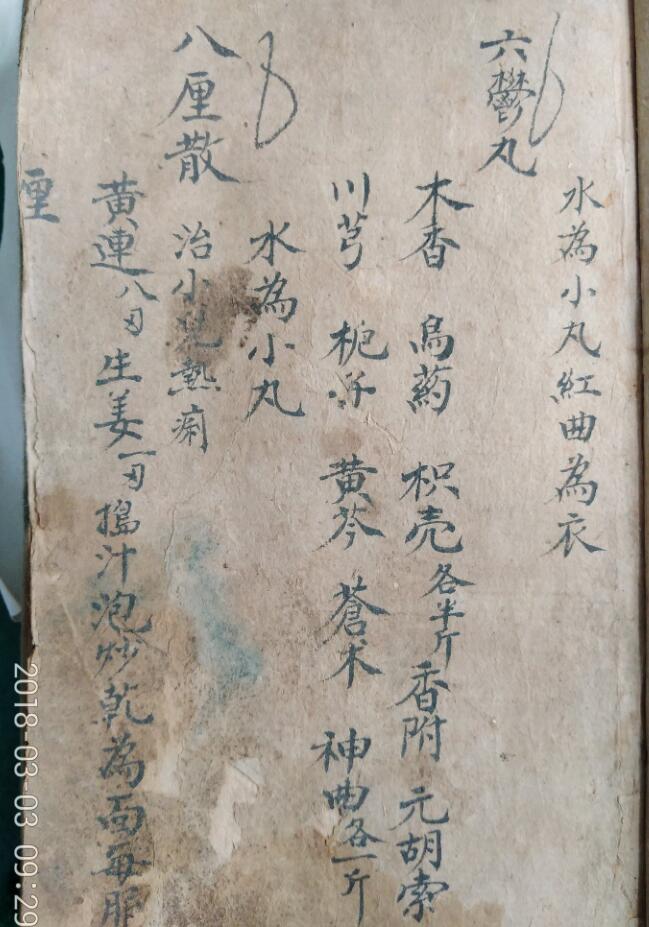 水為小丸紅曲為衣
六鬱丸
木香 烏药 枳壳各半斤 香附 元胡索
川芎 栀子 黄芩 蒼术 神曲各一斤
水為小丸
八厘散
治小兒熱痢
黄連八刄 生姜一刄 搗汁泡炒乾為面每服
厘
2018-03-03 09:29